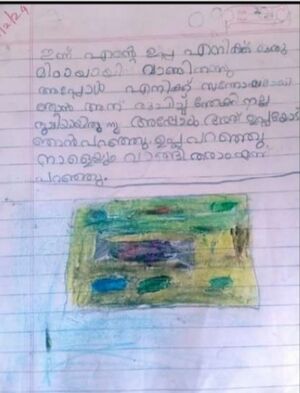 12/24
ഇന്ന് എന്റെ ഉപ്പ എനിക്ക് ഒരു
മിഠായി വാങ്ങിതന്നു
അപ്പോൾ എനിക്ക് സന്തോഷമായി
ഞാൻ അത് രുചിച്ച് നല്ല
അപ്പോൾ ഞാൻ
ഞാൻ പറഞ്ഞു. ഉപ്പ പറഞ്ഞു
നാളെയും വാങ്ങി തരാം എന്ന്
പറഞ്ഞു.